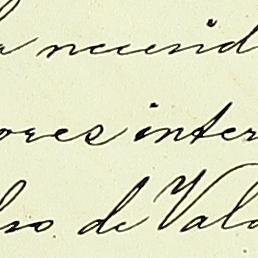 a necesid
ores inter
dro de Vala